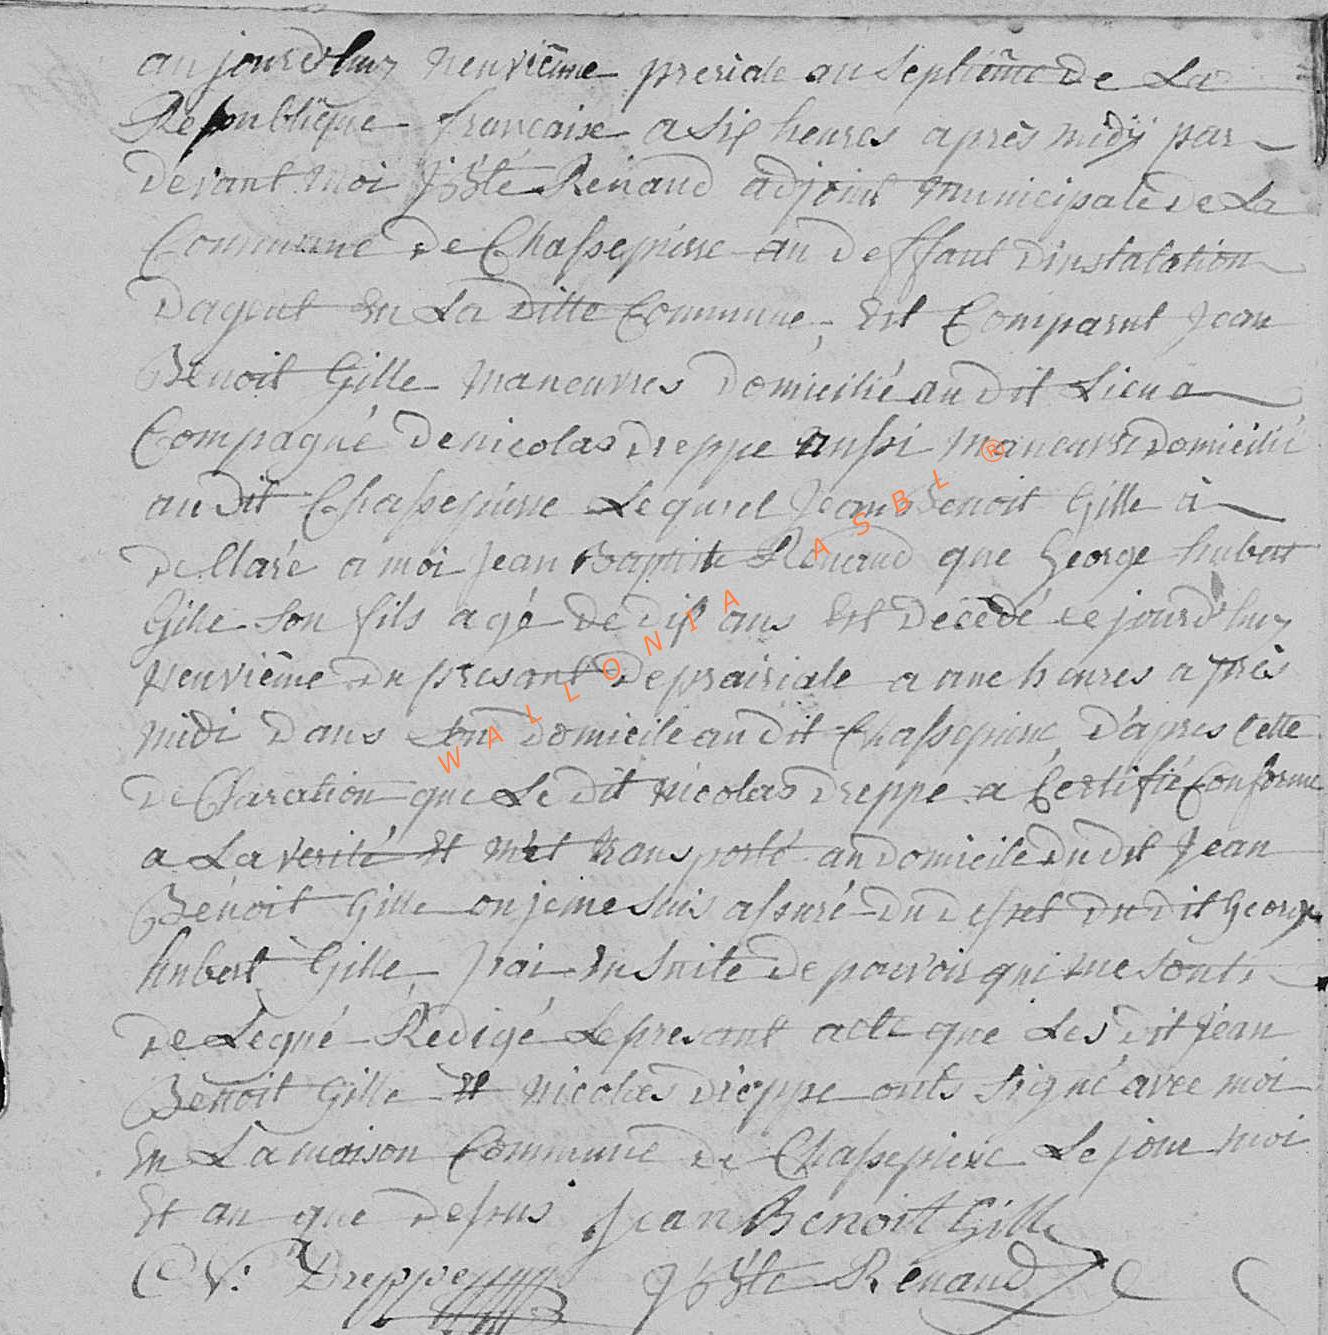 aujourd'huy neuvième preriale an septième de La
Republique française a six heures après midÿ par
devant moi J bste Renaud adjoint municipale de La
Commune de Chassepierre au deffaut d'instalation
dagent en La ditte Commune, Est Comparut Jean
Benoit Gille maneuvres domicilié au dit Lieu a
Compagné de nicolas dreppe aussi maneuvre domicilié
au dit Chassepierre Lequel Jean Benoit Gille à
dellaré a moi Jean Baptiste Renaud que George hubert
Gille son fils agé de dix ans Est decédé ce jourd'huy
neuvième du presant de prairiale a une heures après
midi dans son domicile au dit Chassepierre, d'apres cette
declaration que Le dit nicolas dreppe a Certifié Conforme
a La verité Et m'et transporté au domicile du dit Jean
Benoit Gille ou je me suis assuré du desset du dit George
hubert Gille, J'ai en suite de pouvoir qui me sonts
delegué Rédigé Le presant acte que Les dit Jean
Benoit Gille Et nicolas dreppe onts signé avec moi
en La maison Commune de Chassepierre Le jour moi
Et an que dessus Jean Benoit Gille
Dreppe J bste Renaud
WALLONIA ASBL ®